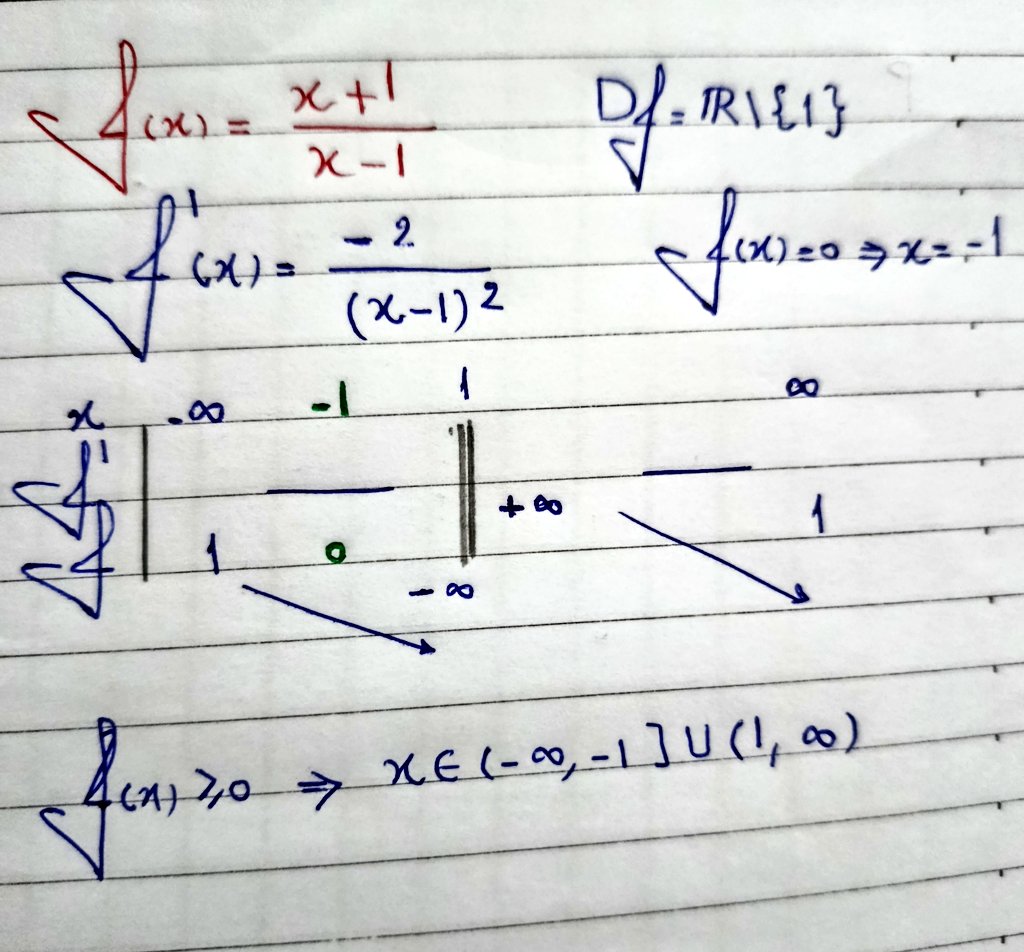 f(x) = (x+1)/(x-1) Df = ℝ\{1}
f'(x) = -2/(x-1)² f(x)=0 ⇒ x=-1
x -∞ -1 1 ∞
f' — —
f 1 0 -∞ +∞ 1
f(x) ≥ 0 ⇒ x ∈ (-∞, -1] ∪ (1, ∞)